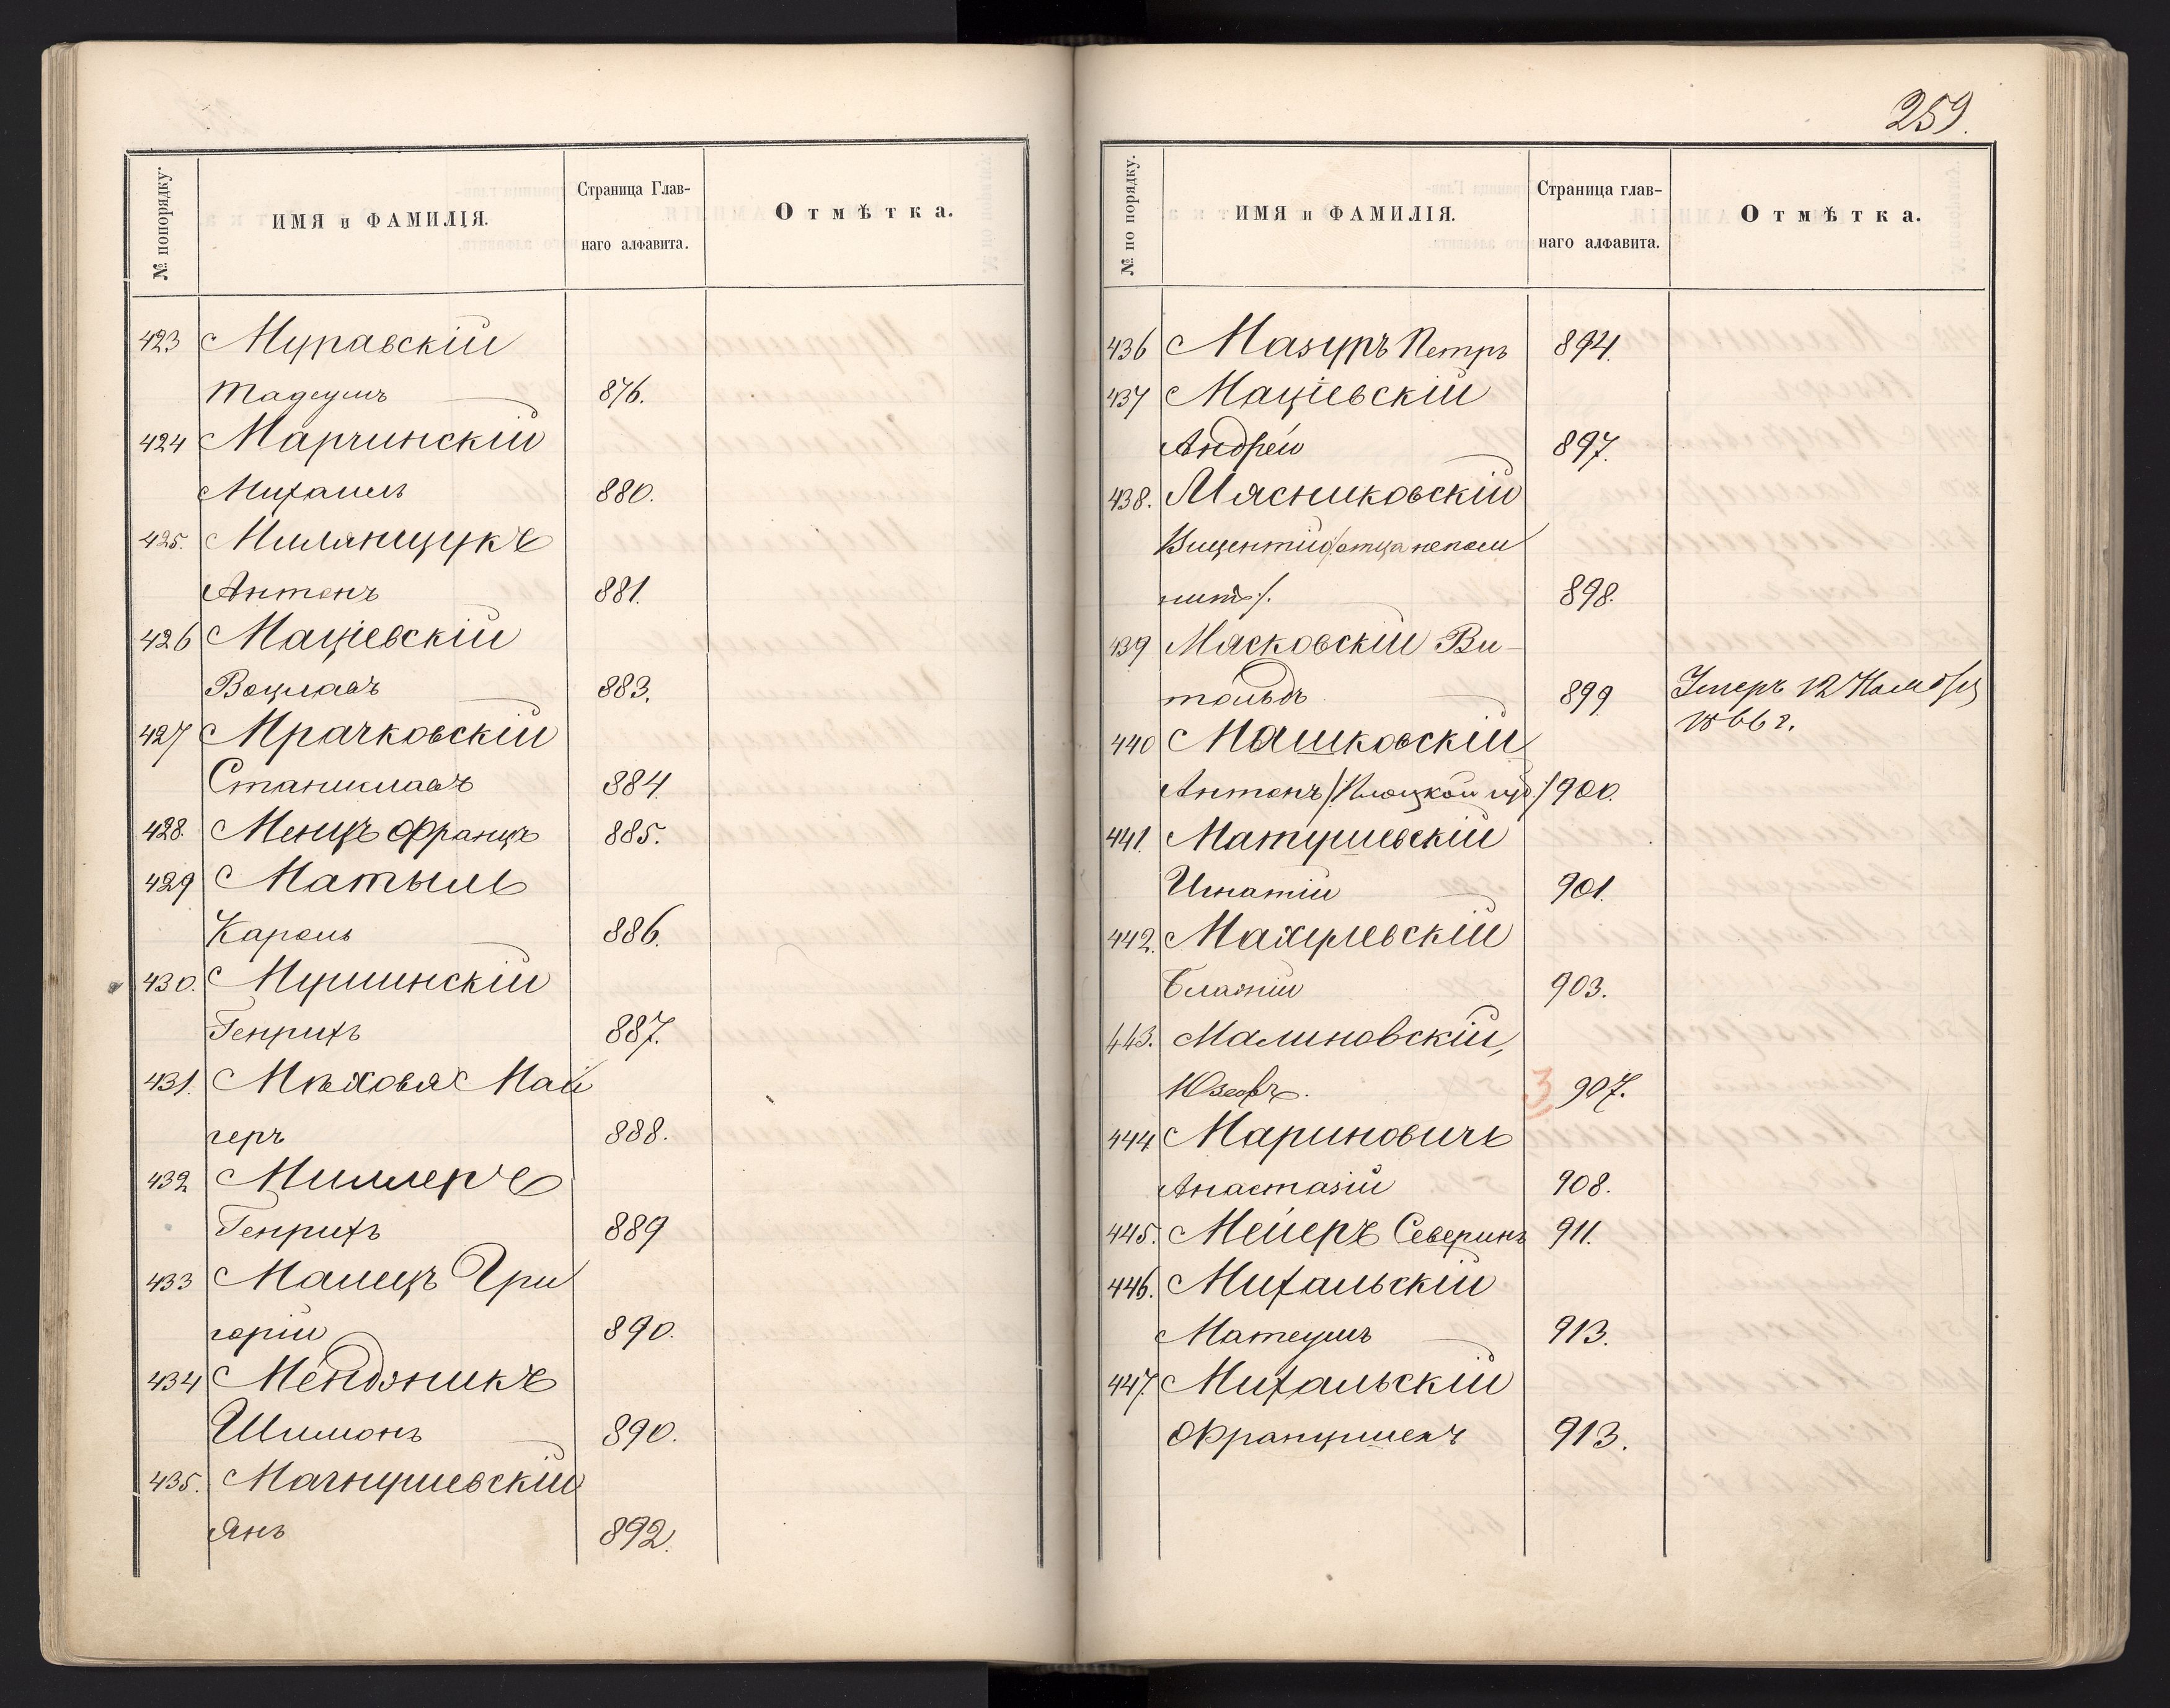 № попорядку.
ИМЯ и ФАМИЛІЯ.
Страница Глав-
наго алфавита.
Отмѣтка.
423 Муравскій
Тадеушъ 876.
424 Марчинскій
Михаилъ 880.
425. Милянщукъ
Антонъ 881.
426 Маціевскій
Вацлавъ 883.
427 Мрачковскій
Станиславъ 884.
428. Менцъ Францъ 885.
429 Матыль
Кароль 886.
430. Мушинскій
Генрихъ 887.
431. Мѣховъ Май
геръ 888.
432 Миллеръ
Генрихъ 889
433 Малецъ Гри
горій 890.
434 Мендзникъ
Шимонъ 890.
435. Магнушевскій
Янъ 892.
259.
№ по порядку.
ИМЯ и ФАМИЛІЯ.
Страница глав-
наго алфавита.
Отмѣтка.
436 Мазуръ Петръ 894.
437 Маціевскій
Андрей 897.
438. Мясниковскій
Вицентій /:отца непом
нитъ:/. 898.
439 Мясковскій Ви-
тольдъ 899. Умеръ 12 Ноября
1866 г.
440 Машковскій
Антонъ /:Плоцкой гу:/ 900.
441. Матушевскій
Игнатій 901.
442. Махчевскій
Блажій 903.
443. Малиновскій,
Юзефъ. 3 907.
444 Мариновичъ
Анастазій 908.
445. Мейеръ Северинъ 911.
446. Михальскій
Матеушъ 913.
447. Михальскій
Францишекъ 913.